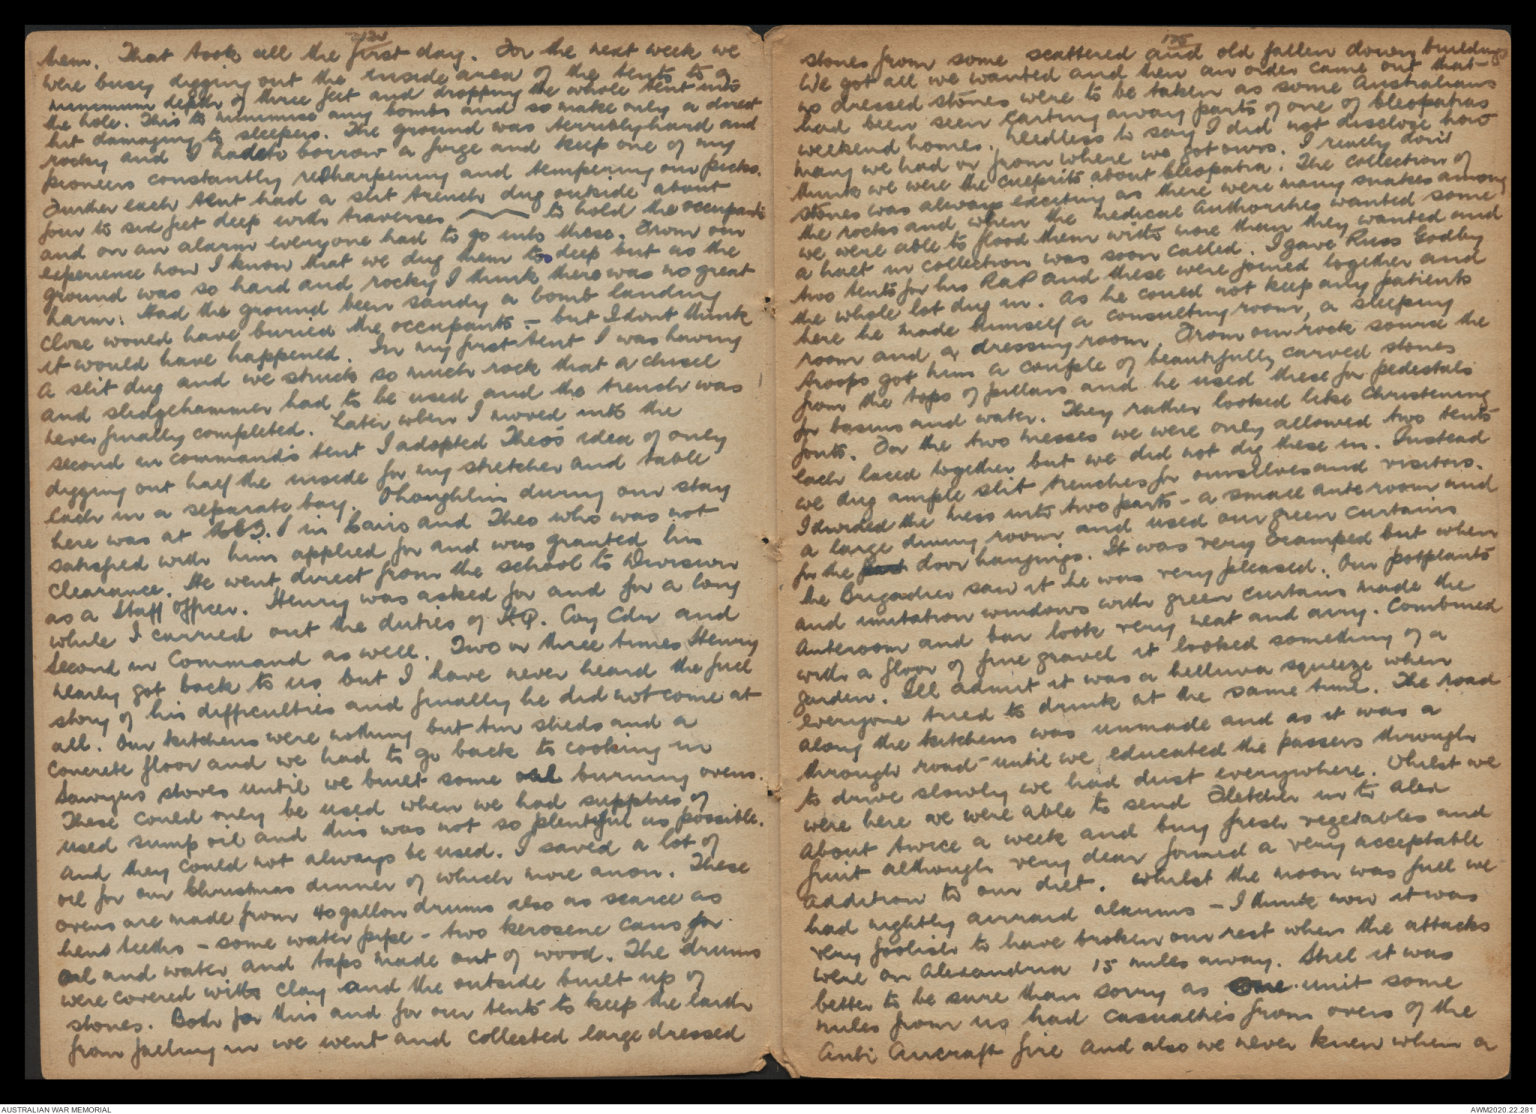 them. That took all the first day. For the next week we
were busy digging out the inside area of the tents to a
minimum depth of three feet and dropping the whole tent into
the hole. This to minimise any bombs and so make only a direct
hit damaging to sleepers. The ground was terribly hard and
rocky and I had to borrow a forge and keep one of my
pioneers constantly resharpening and tempering our picks.
Further each tent had a slit trench dug outside about
four to six feet deep with traverses to hold the occupants
and on an alarm everyone had to go into these. From our
experience now I know that we dug them too deep but as the
ground was so hard and rocky I think there was no great
harm. Had the ground been sandy a bomb landing
close would have buried the occupants - but I dont think
it would have happened. In my first tent I was having
a slit dug and we struck so much rock that a chisel
and sledgehammer had to be used and the trench was
never finally completed. Later when I moved into the
second in commands tent I adopted Theo's idea of only
digging out half the inside for my stretcher and table
each in a separate bay. OLoughlin during our stay
here was at in Cairo and Theo who was not
satisfied with him applied for and was granted his
clearance. He went direct from the school to Division
as a Staff Officer. Henry was asked for and for a long
while I carried out the duties of HQ. Coy Cdr and
Second in Command as well. Two or three times Henry
nearly got back to us but I have never heard the full
story of his difficulties and finally he did not come at
all. Our kitchens were nothing but tin sheds and a
concrete floor and we had to go back to cooking in
Sawyers stoves until we built some oil burning ovens.
These could only be used when we had supplies of
used sump oil and this was not so plentiful as possible.
and they could not always be used. I saved a lot of
oil for our Christmas dinner of which more anon. These
ovens are made from 40 gallon drums also as scarce as
hens teeths - some water pipe - two kerosene cans for
oil and water and taps made out of wood. The drums
were covered with clay and the outside built up of
stones. Both for this and for our tents to keep the earth
from falling in we went and collected large dressed
175
stones from some scattered and old fallen down buildings
We got all we wanted and then an order came out that
no dressed stones were to be taken as some Australians
had been seen carting away parts of one of Cleopatras
weekend homes. Needless to say I did not disclose how
many we had or from where we got ours. I really dont
think we were the culprits about Cleopatra. The collection of
stones was always exciting as there were many snakes among
the rocks and when the Medical Authorities wanted some
we were able to flood them with more than they wanted and
a halt in collection was soon called. I gave Russ Godby
two tents for his RAP and these were joined together and
the whole lot dug in. As he could not keep any patients
here he made himself a consulting room, a sleeping
room and a dressing room. From our rock source the
troops got him a couple of beautifully carved stones
from the tops of pillars and he used these for pedestals
for basins and water. They rather looked like Christening
fonts. For the two messes we were only allowed two tents
each laced together but we did not dig these in. Instead
we dug ample slit trenches for ourselves and visitors.
I divided the mess into two parts - a small anteroom and
a large dining room and used our green curtains
for the door hangings. It was very cramped but when
the Brigadier saw it he was very pleased. Our potplants
and imitation windows with green curtains made the
Anteroom and bar look very neat and airy. Combined
with a floor of fine gravel it looked something of a
garden. Ill admit it was a helluva squeeze when
everyone tried to drink at the same time. The road
along the kitchens was unmade and as it was a
through road until we educated the passers through
to drive slowly we had dust everywhere. Whilst we
were here we were able to send Fletcher in to Alex
about twice a week and buy fresh vegetables and
fruit although very dear formed a very acceptable
addition to our diet. Whilst the moon was full we
had nightly airraid alarms - I think now it was
very foolish to have broken our rest when the attacks
were on Alexandria 15 miles away. Still it was
better to be sure than sorry as one unit some
miles from us had casualties from overs of the
Anti Aircraft fire and also we never knew when a
AUSTRALIAN WAR MEMORIAL
AWM2020.22.281